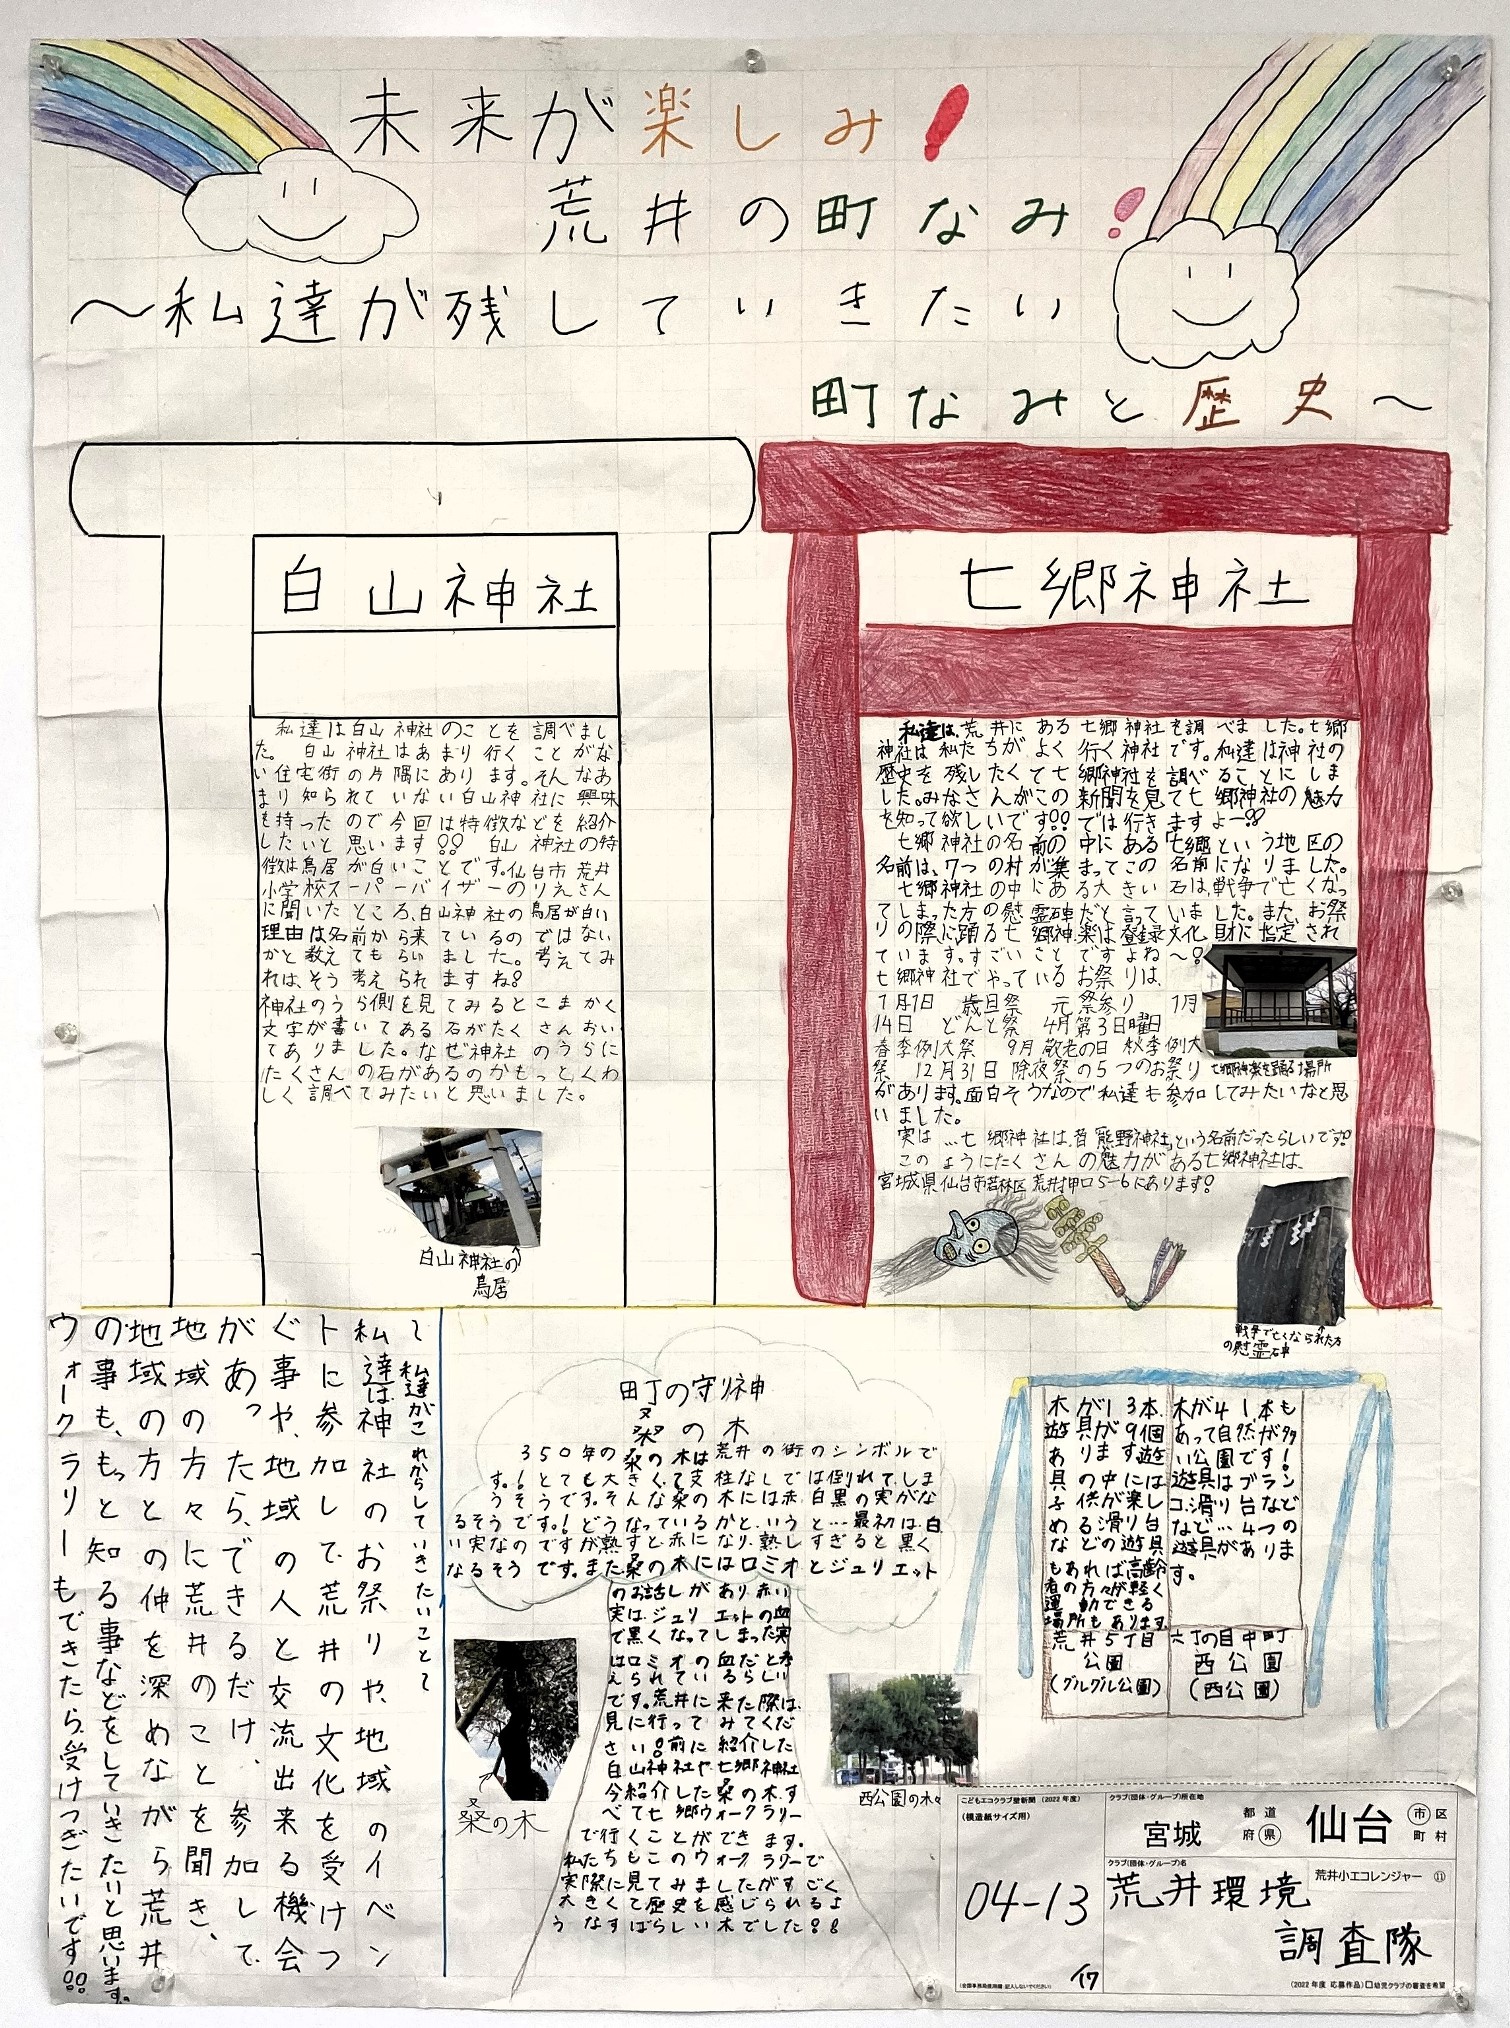 未来が楽しみ!
荒井の町なみ!
～私達が残していきたい
町なみと歴史～
白山神社
私達は白山神社のことを調べまし
た。白山神社はあまり行くことがな
い住宅街の片隅にあります。そんなあ
まり知られていない白山神社に興味
を持ったので今回は特徴などを紹介
したいと思います!!白山神社の特
徴は鳥居が白いことです。仙台市荒井
小学校スーパーバイザーのりえさん
に聞いたところ、白山神社の鳥居が白い
理由は名前から来ているのではない
かと教えてもらいました。考えてみ
れば、そう考えられますね!
神社のうら側を見てみるとこまかく
文字が書いてある石がたくさんおい
てありました。なぜ神社のうらに
たくさんの石があるのかもっとくわ
しく調べてみたいと思いました。
白山神社の
鳥居
七郷神社
私達は、荒井にある七郷神社を調べました。七郷
神社は私たちがよく行く神社です。私達は神社の
歴史を残したくて七郷神社を調べることにしま
した。みなさんがこの新聞を見て七郷神社の魅力
を知って欲しいです!!では行きますよー!!
七郷神社の名前の中にある「七郷」という地区の
名前は、7つの村が集まってこの名前になりました。
七郷神社の中にある大きい石は、戦争で亡くなっ
てしまった方の慰霊碑だと言っていました。また、お祭
りの際に踊る七郷神楽は登録文化財に指定され
ています。すごいことですよね～!
七郷神社でやっているお祭りは、
1月1日 歳旦祭 元祭参り 1月
14日 どんと祭 4月第3日曜日
春季例大祭 9月敬老の日 秋季例大
祭 12月31日 除夜祭の5つのお祭り
があります。面白そうなので私達も参加してみたいなと思
いました。
実は…七郷神社は、昔「熊野神社」という名前だったらしいです!
このようにたくさんの魅力がある七郷神社は、
宮城県仙台市若林区荒井押口5-6にあります!
七郷神楽を踊る場所
戦争で亡くなられた方
の慰霊碑
～私達がこれからしていきたいこと～
私達は神社のお祭りや、地域のイベン
トに参加して、荒井の文化を受けつ
ぐ事や、地域の人と交流出来る機会
があったら、できるだけ、参加して、
地域の方々に荒井のことを聞き、
地域の方との仲を深めながら荒井
の事も、もっと知る事などをしていきたいと思います。
ウォークラリーもできたら、受けつぎたいです!!
町の守り神
桑の木
350年の桑の木は荒井の街のシンボルで
す。!とても大きくて支柱なしでは倒れてしま
うそうです。そんな桑の木には赤白黒の実がな
るそうです。!どうなっているかというと…最初は、白
い実なのですが熟すと赤になり、熟しすぎると黒く
なるそうです。また桑の木にはロミオとジュリエット
のお話しがあり赤い
実は、ジュリエットの血
で黒くなってしまった実
はロミオの血だと考
えられているらしい
です。荒井に来た際は、
見に行ってみてくだ
さい!前に紹介した
白山神社や七郷神社
今紹介した桑の木す
べて七郷ウォークラリー
で行くことができます。
私たちもこのウォークラリーで
実際に見てみましたがすごく
大きくて歴史を感じられるよ
うなすばらしい木でした!!
桑の木
木が13本、
遊具が9個
あります。遊
具の中には
子供が楽し
める滑り台
などの遊具
もあれば高齢
者の方々が軽く
運動できる
場所もあります。
荒井5丁目
公園
(グルグル公園)
木が41本も
あって自然が多
い公園です!
遊具はブラン
コ、滑り台など
など…4つの
遊具がありま
す。
六丁の目中町
西公園
(西公園)
西公園の木々
こどもエコクラブ壁新聞 (2022年度)
(模造紙サイズ用)
04-13
/17
(全国事務局使用欄:記入しないでください)
クラブ(団体・グループ)所在地
宮城 都道府県 仙台 市区町村
クラブ(団体・グループ)名
荒井小エコレンジャー ⑪
荒井環境
調査隊
(2022年度 応募作品) □幼児クラブの審査を希望